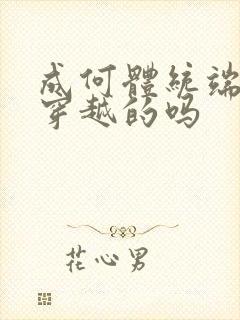 成何體統端
穿越的吗
花心男